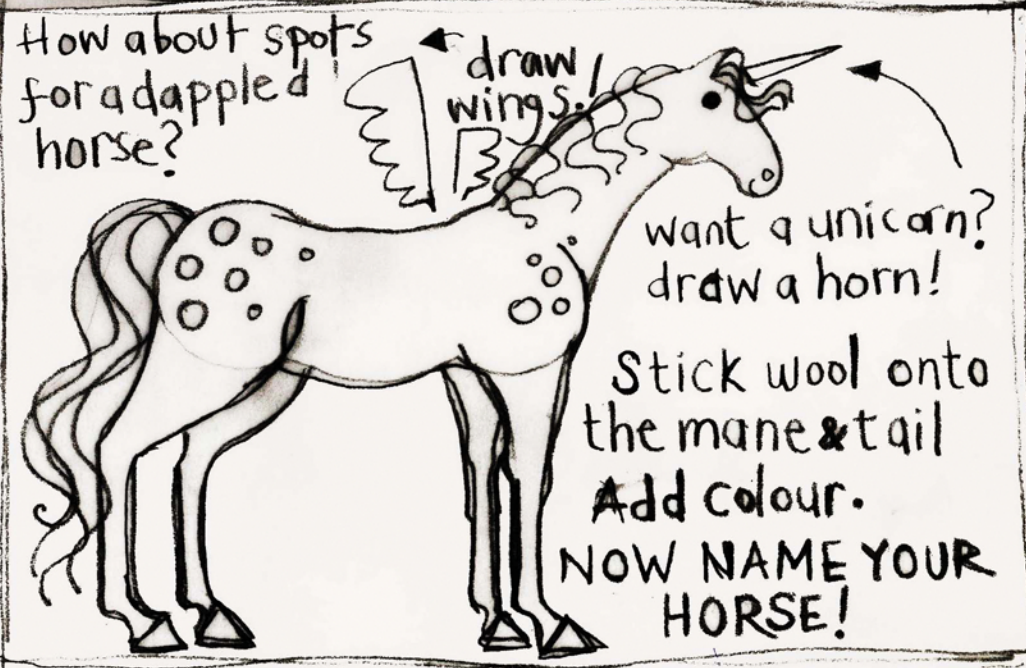 How about spots
for a dappled
horse?
draw
wings!
want a unicorn?
draw a horn!
Stick wool onto
the mane & tail
Add colour.
NOW NAME YOUR
HORSE!